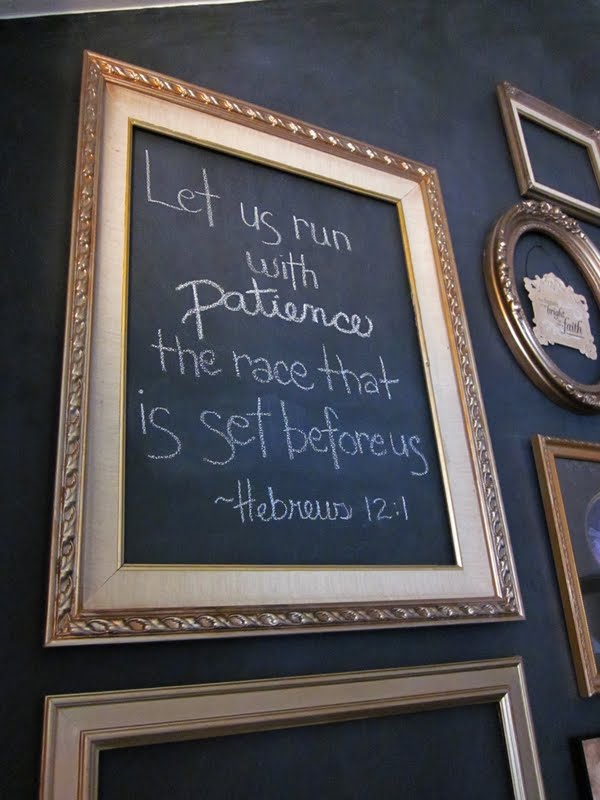 Let us run
with
Patience
the race that
is set before us
~Hebrews 12:1
bright
faith